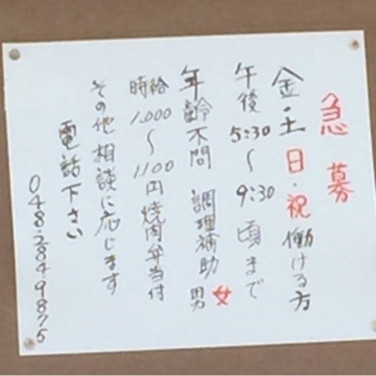 急募
金・土日・祝働ける方
午後5:30〜9:30頃まで
年齢不問 調理補助男女
時給1,000〜1100円焼肉弁当付
その他相談に応じます
電話下さい
048-2849875